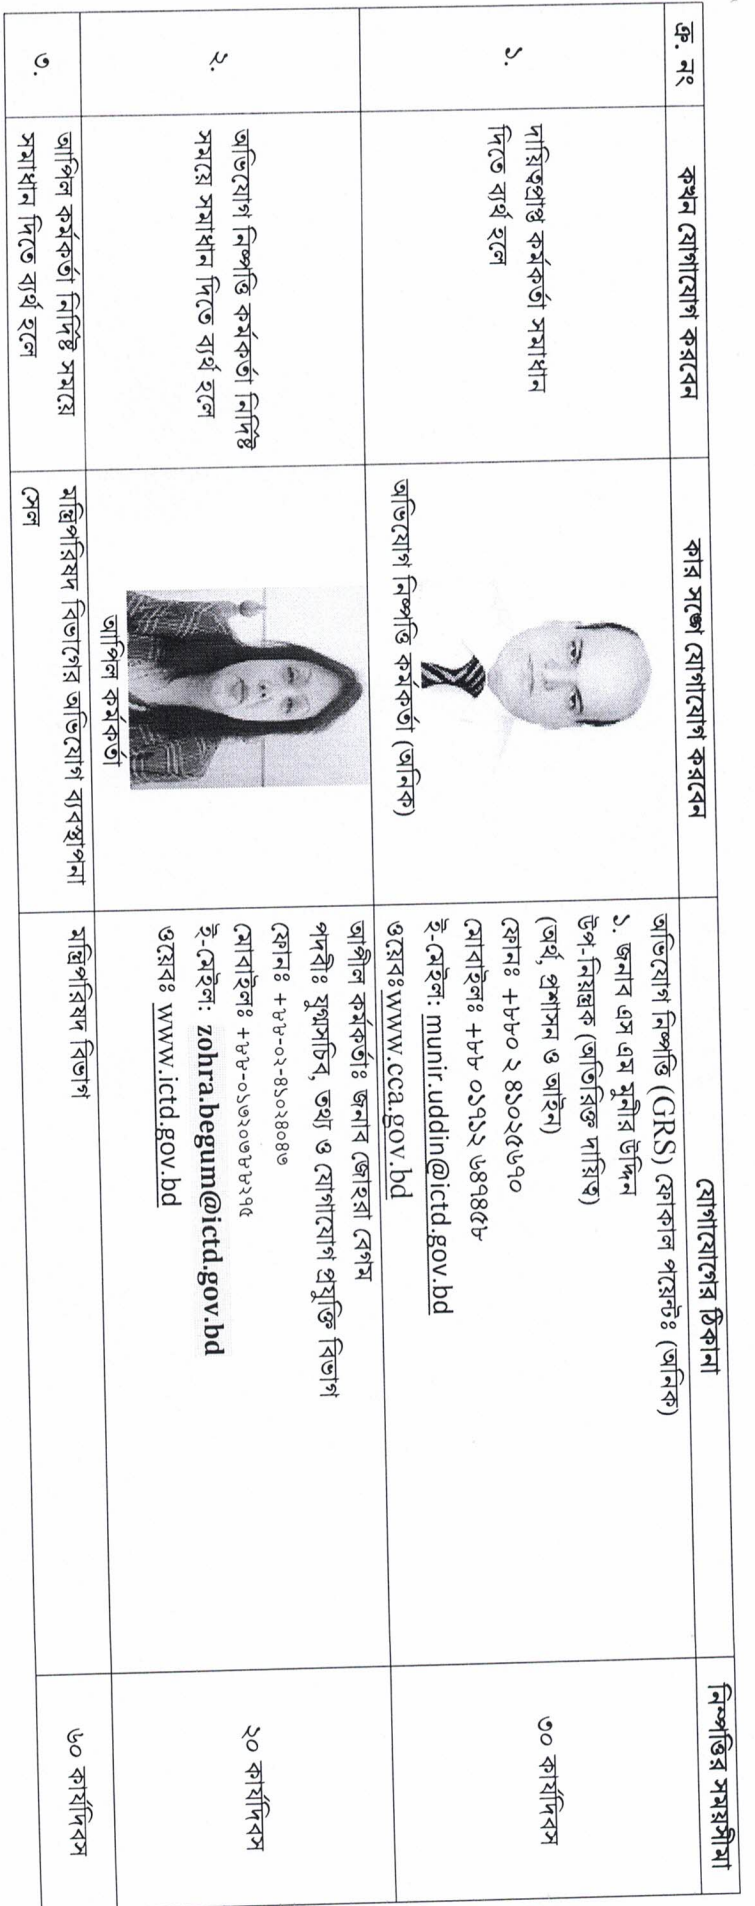 ক্র. নং
কখন যোগাযোগ করবেন
কার সঙ্গে যোগাযোগ করবেন
যোগাযোগের ঠিকানা
নিষ্পত্তির সময়সীমা
১.
দায়িত্বপ্রাপ্ত কর্মকর্তা সমাধান
দিতে ব্যর্থ হলে
অভিযোগ নিষ্পত্তি কর্মকর্তা (অনিক)
অভিযোগ নিষ্পত্তি (GRS) ফোকাল পয়েন্টঃ (অনিক)
১. জনাব এস এম মুনীর উদ্দিন
উপ-নিয়ন্ত্রক (অতিরিক্ত দায়িত্ব)
(অর্থ, প্রশাসন ও আইন)
ফোনঃ +৮৮০ ২ ৪১০২৫৬৭০
মোবাইলঃ +৮৮ ০১৭১২ ৬৪৭৪৫৮
ই-মেইল: munir.uddin@ictd.gov.bd
ওয়েবঃwww.cca.gov.bd
৩০ কার্যদিবস
২.
অভিযোগ নিষ্পত্তি কর্মকর্তা নির্দিষ্ট
সময়ে সমাধান দিতে ব্যর্থ হলে
আপিল কর্মকর্তা
আপীল কর্মকর্তাঃ জনাব জোহরা বেগম
পদবীঃ যুগ্মসচিব, তথ্য ও যোগাযোগ প্রযুক্তি বিভাগ
ফোনঃ +৮৮-০২-৪১০২৪০৪৩
মোবাইলঃ +৮৮-০১৭২০৩৮৮২৭৫
ই-মেইল: zohra.begum@ictd.gov.bd
ওয়েবঃ www.ictd.gov.bd
২০ কার্যদিবস
৩.
আপিল কর্মকর্তা নির্দিষ্ট সময়ে
সমাধান দিতে ব্যর্থ হলে
মন্ত্রিপরিষদ বিভাগের অভিযোগ ব্যবস্থাপনা
সেল
মন্ত্রিপরিষদ বিভাগ
৬০ কার্যদিবস